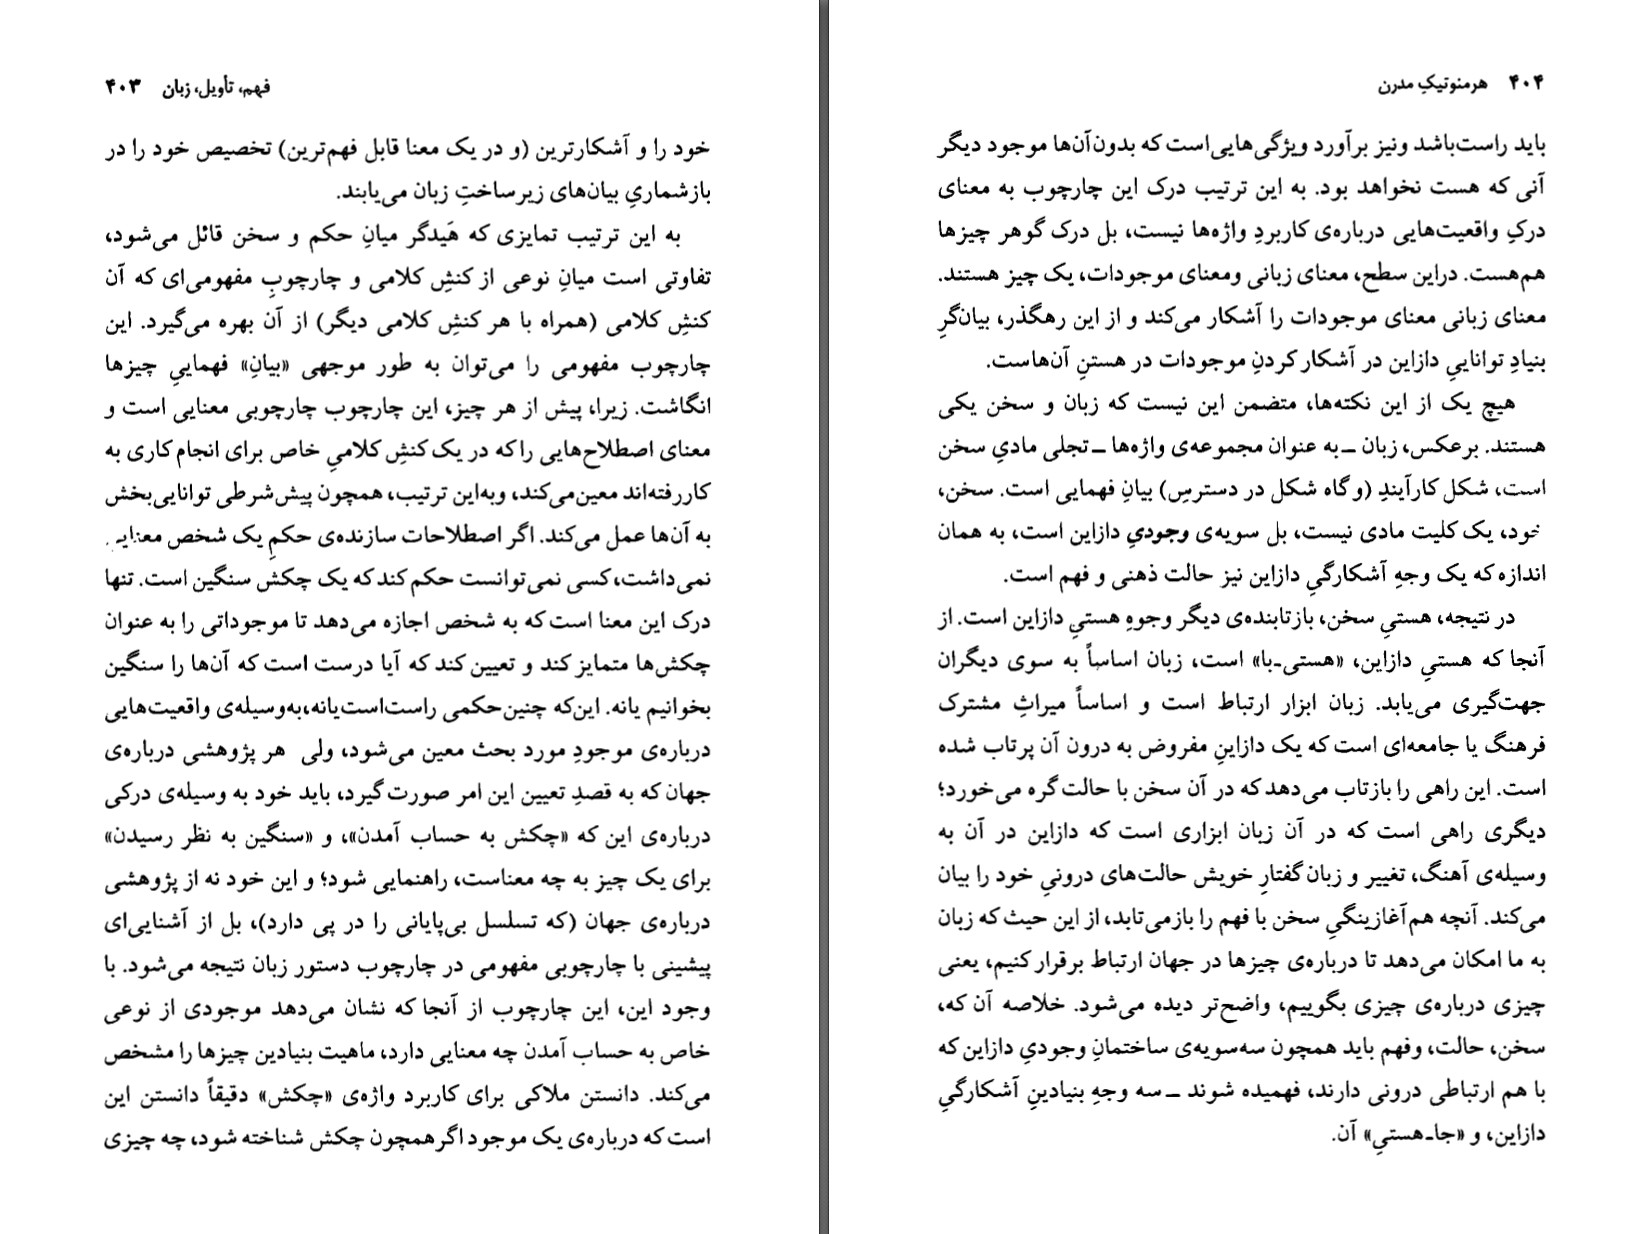 فهم، تأویل، زبان ۴۰۳
خود را و آشکارترین (و در یک معنا قابل فهم‌ترین) تخصیص خود را در
بازشماریِ بیان‌های زیرساختِ زبان می‌یابند.
به این ترتیب تمایزی که هَیدگر میانِ حکم و سخن قائل می‌شود،
تفاوتی است میانِ نوعی از کنشِ کلامی و چارچوبِ مفهومی‌ای که آن
کنشِ کلامی (همراه با هر کنشِ کلامی دیگر) از آن بهره می‌گیرد. این
چارچوب مفهومی را می‌توان به طور موجهی «بیانِ» فهماییِ چیزها
انگاشت. زیرا، پیش از هر چیز، این چارچوب چارچوبی معنایی است و
معنای اصطلاح‌هایی را که در یک کنشِ کلامیِ خاص برای انجام کاری به
کار رفته‌اند معین می‌کند، و به این ترتیب، همچون پیش‌شرطی توانایی‌بخش
به آن‌ها عمل می‌کند. اگر اصطلاحات سازنده‌ی حکمِ یک شخص معنایی
نمی‌داشت، کسی نمی‌توانست حکم کند که یک چکش سنگین است. تنها
درک این معنا است که به شخص اجازه می‌دهد تا موجوداتی را به عنوان
چکش‌ها متمایز کند و تعیین کند که آیا درست است که آن‌ها را سنگین
بخوانیم یا نه. این‌که چنین حکمی راست است یا نه، به وسیله‌ی واقعیت‌هایی
درباره‌ی موجودِ مورد بحث معین می‌شود، ولی هر پژوهشی درباره‌ی
جهان که به قصدِ تعیین این امر صورت گیرد، باید خود به وسیله‌ی درکی
درباره‌ی این که «چکش به حساب آمدن»، و «سنگین به نظر رسیدن»
برای یک چیز به چه معناست، راهنمایی شود؛ و این خود نه از پژوهشی
درباره‌ی جهان (که تسلسل بی‌پایانی را در پی دارد)، بل از آشنایی‌ای
پیشینی با چارچوبی مفهومی در چارچوب دستور زبان نتیجه می‌شود. با
وجود این، این چارچوب از آنجا که نشان می‌دهد موجودی از نوعی
خاص به حساب آمدن چه معنایی دارد، ماهیت بنیادین چیزها را مشخص
می‌کند. دانستن ملاکی برای کاربرد واژه‌ی «چکش» دقیقاً دانستن این
است که درباره‌ی یک موجود اگر همچون چکش شناخته شود، چه چیزی
۴۰۴ هرمنوتیکِ مدرن
باید راست باشد و نیز برآورد ویژگی‌هایی است که بدون آن‌ها موجود دیگر
آنی که هست نخواهد بود. به این ترتیب درک این چارچوب به معنای
درکِ واقعیت‌هایی درباره‌ی کاربردِ واژه‌ها نیست، بل درک گوهر چیزها
هم هست. در این سطح، معنای زبانی و معنای موجودات، یک چیز هستند.
معنای زبانی معنای موجودات را آشکار می‌کند و از این رهگذر، بیان‌گرِ
بنیادِ تواناییِ دازاین در آشکار کردنِ موجودات در هستنِ آن‌هاست.
هیچ یک از این نکته‌ها، متضمن این نیست که زبان و سخن یکی
هستند. برعکس، زبان ــ به عنوان مجموعه‌ی واژه‌ها ــ تجلی مادیِ سخن
است، شکل کارآیندِ (و گاه شکل در دسترسِ) بیانِ فهمایی است. سخن،
خود، یک کلیت مادی نیست، بل سویه‌ی وجودیِ دازاین است، به همان
اندازه که یک وجهِ آشکارگیِ دازاین نیز حالت ذهنی و فهم است.
در نتیجه، هستیِ سخن، بازتابنده‌ی دیگر وجوهِ هستیِ دازاین است. از
آنجا که هستیِ دازاین، «هستی-با» است، زبان اساساً به سوی دیگران
جهت‌گیری می‌یابد. زبان ابزار ارتباط است و اساساً میراثِ مشترک
فرهنگ یا جامعه‌ای است که یک دازاینِ مفروض به درون آن پرتاب شده
است. این راهی را بازتاب می‌دهد که در آن سخن با حالت گره می‌خورد؛
دیگری راهی است که در آن زبان ابزاری است که دازاین در آن به
وسیله‌ی آهنگ، تغییر و زبان گفتارِ خویش حالت‌های درونیِ خود را بیان
می‌کند. آنچه هم‌آغازینگیِ سخن با فهم را بازمی‌تابد، از این حیث که زبان
به ما امکان می‌دهد تا درباره‌ی چیزها در جهان ارتباط برقرار کنیم، یعنی
چیزی درباره‌ی چیزی بگوییم، واضح‌تر دیده می‌شود. خلاصه آن که،
سخن، حالت، و فهم باید همچون سه سویه‌ی ساختمانِ وجودیِ دازاین که
با هم ارتباطی درونی دارند، فهمیده شوند ــ سه وجهِ بنیادینِ آشکارگیِ
دازاین، و «جا-هستیِ» آن.